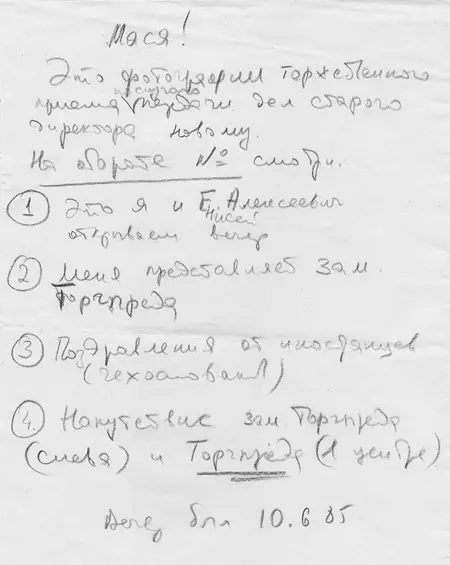 Мася!
Это фотографии торжественного
приема передачи дел старого
директора новому.
На обороте № смотри.
1 Это я и Е. Алексеевич
нисей
открываем вечер
2 Меня представляет зам.
Торгпреда
3 Поздравления от иностранцев
(чехословаки)
4. Напутствие зам Торгпреда
(слева) и Торгпреда (в центре)
Вечер был 10.6 85